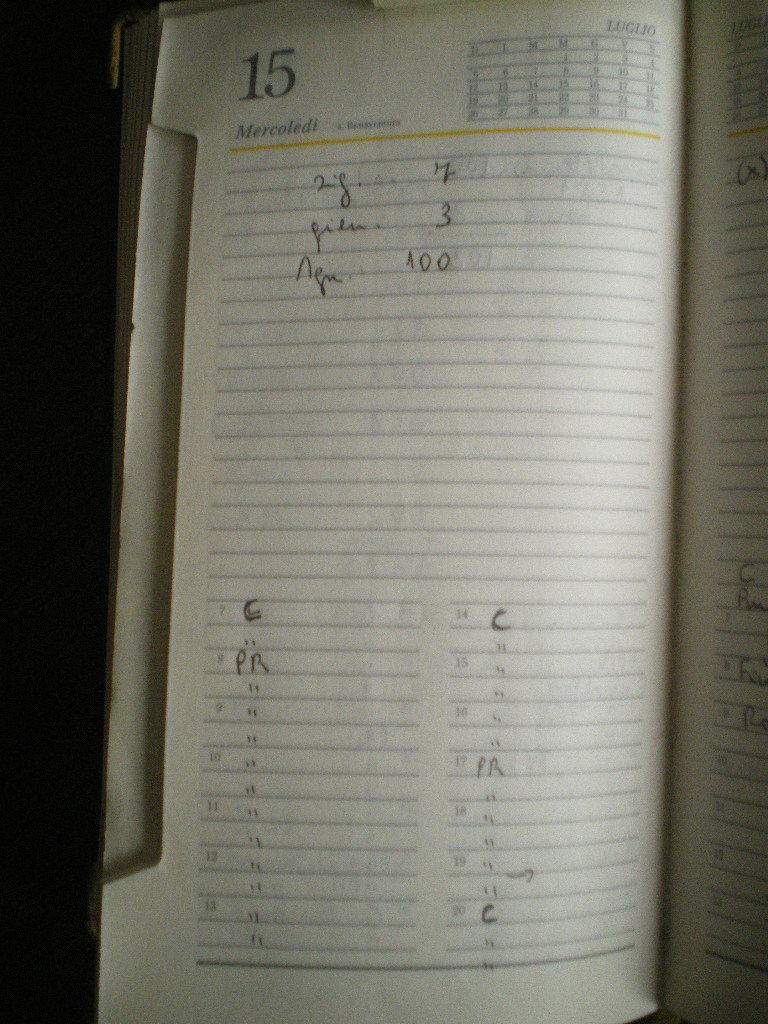 LUGLIO
15
D L M M G V S
1 2 3 4
5 6 7 8 9 10 11
12 13 14 15 16 17 18
19 20 21 22 23 24 25
26 27 28 29 30 31
Mercoledì s. Bonaventura
zig. 7
gien. 3
100
7 C
"
8 PR
"
9 "
"
10 "
"
11 "
"
12 "
"
13 "
"
14 C
"
15 "
"
16 "
"
17 PR
"
18 "
"
19 " →
"
20 C
"
"
(x)
C